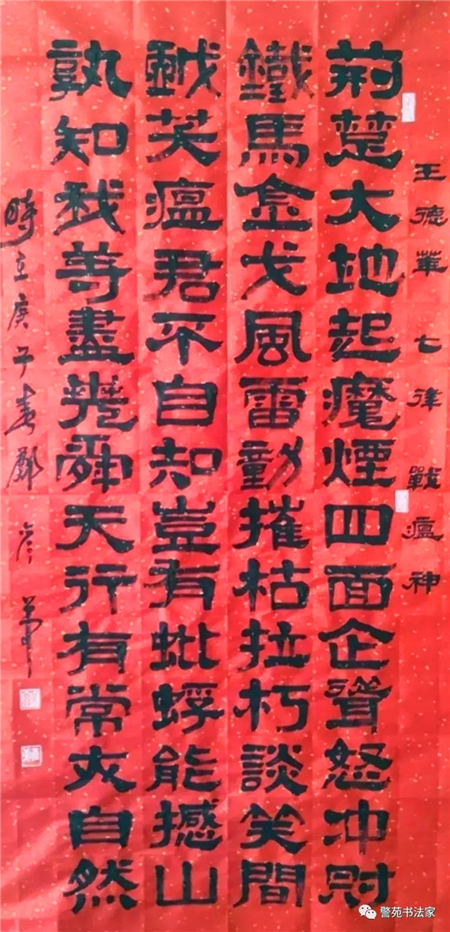 王德華 七律 戰瘟神
荊楚大地起魔煙四面企聳怒冲
鐵馬金戈風雷動摧枯拉朽談笑間
笑瘟君不自知豈有蚍蜉能撼山
孰知我等盡堯舜天行有常自然
時在庚子春鄭彦
警苑书法家